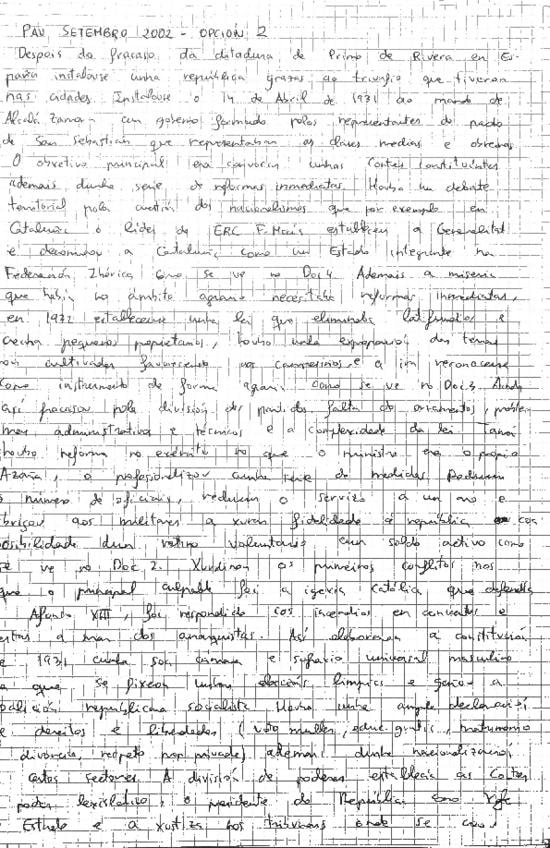 PAU SETEMBRO 2002 - OPCIÓN 2
Despois do fracaso da ditadura de Primo de Rivera en Es-
paña instalouse unha república grazas ao triunfo que tiveron
nas cidades. Instalouse o 14 de Abril de 1931 ao mando de
Alcalá Zamora cun goberno formado polos representantes do pacto
de San Sebastián que representaban as clases medias e obreiras
O obxetivo principal era convocar unhas Cortes Constituintes
ademais dunha serie de reformas inmediatas. Houbo un debate
territorial pola cuestión dos nacionalismos que por exemplo en
Cataluña o líder de ERC F. Maciá estableceu a Generalitat
e denominou a Cataluña como un Estado integrante na
Federación Ibérica como se ve no Doc 4. Ademais a miseria
que había no ámbito agrario necesitaba reformas inmediatas,
en 1932 estableceuse unha lei que eliminaba latifundios e
creaba pequenos propietarios, houbo unha expropiación das terras
non cultivadas favorecendo aos campesiños e a
como instrumento de forma agraria como se ve no Doc 3. Aínda
así fracasou pola división dos partidos falta de orzamentos, proble-
mas administrativos e técnicos e a complexidade da lei. Tamén
houbo reforma no exército no que o ministro era o propio
Azaña, o profesionalizou cunha serie de medidas. Reduceu
o número de oficiais, reduceu o servizo a un ano e
obrigou aos militares a xurar fidelidade á república coa
posibilidade dun retiro voluntario cun soldo activo como
se ve no Doc 2. Xurdiron os primeiros conflitos nos
que o principal culpable foi a igrexa católica que defendía
a Afonso XIII, foi respondida cos incendios en conventos e
a man dos anarquistas. Así elaboraron a constitución
de 1931 cunha soa cámara e sufraxio universal masculino
a que se fixeron unhas eleccións limpas e gañou a
coalición republicana socialista. Houbo unha ampla declaración
de dereitos e liberdades (voto muller, educ. gratis, matrimonio
divorcio, respeto prop. privada) ademais dunha nacionalización
certos sectores. A división de poderes establecía as Cortes
poder lexislativo, o presidente da República como Xefe
Estado e a xustiza nos tribunais onde se